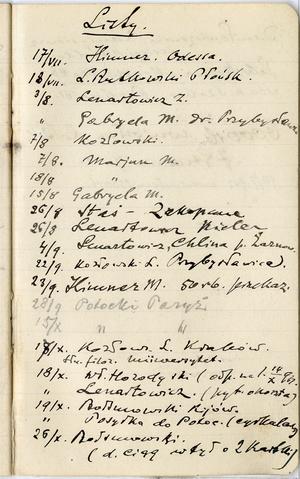 Listy.
17/VII. Himner. Odessa.
18/VII. L. Rutkowski Płońsk.
3/8 Lenartowicz Z.
" Gabryela M. dr. Przybysław
7/8 Kozłowski.
7/8. Marjan M.
18/8 "
15/8 Gabryela M.
26/8 Staś - Zakopane
26/8 Lenartowicz Kielce
4/9. Lenartowicz, Chlina p. Żarnow
22/9. Kozłowski L. Przybysławice).
23/9. Himner M. 50 rb. przekaz.
28/9 Potocki Paryż
15/X " "
17/X. Kozłows. L. Kraków.
Stu. filoz. uniwersytet.
18/X. Wł. Horodyski (odp. na l. 14/X 9 g.
" Lenartowicz. (pyt. choroba)
19/X. Rodsunowski Kijów.
" Posyłka do Potoc. (cyrkularz)
26/X. Rodsunowski.
(d. ciąg wtył o 2 kartki)